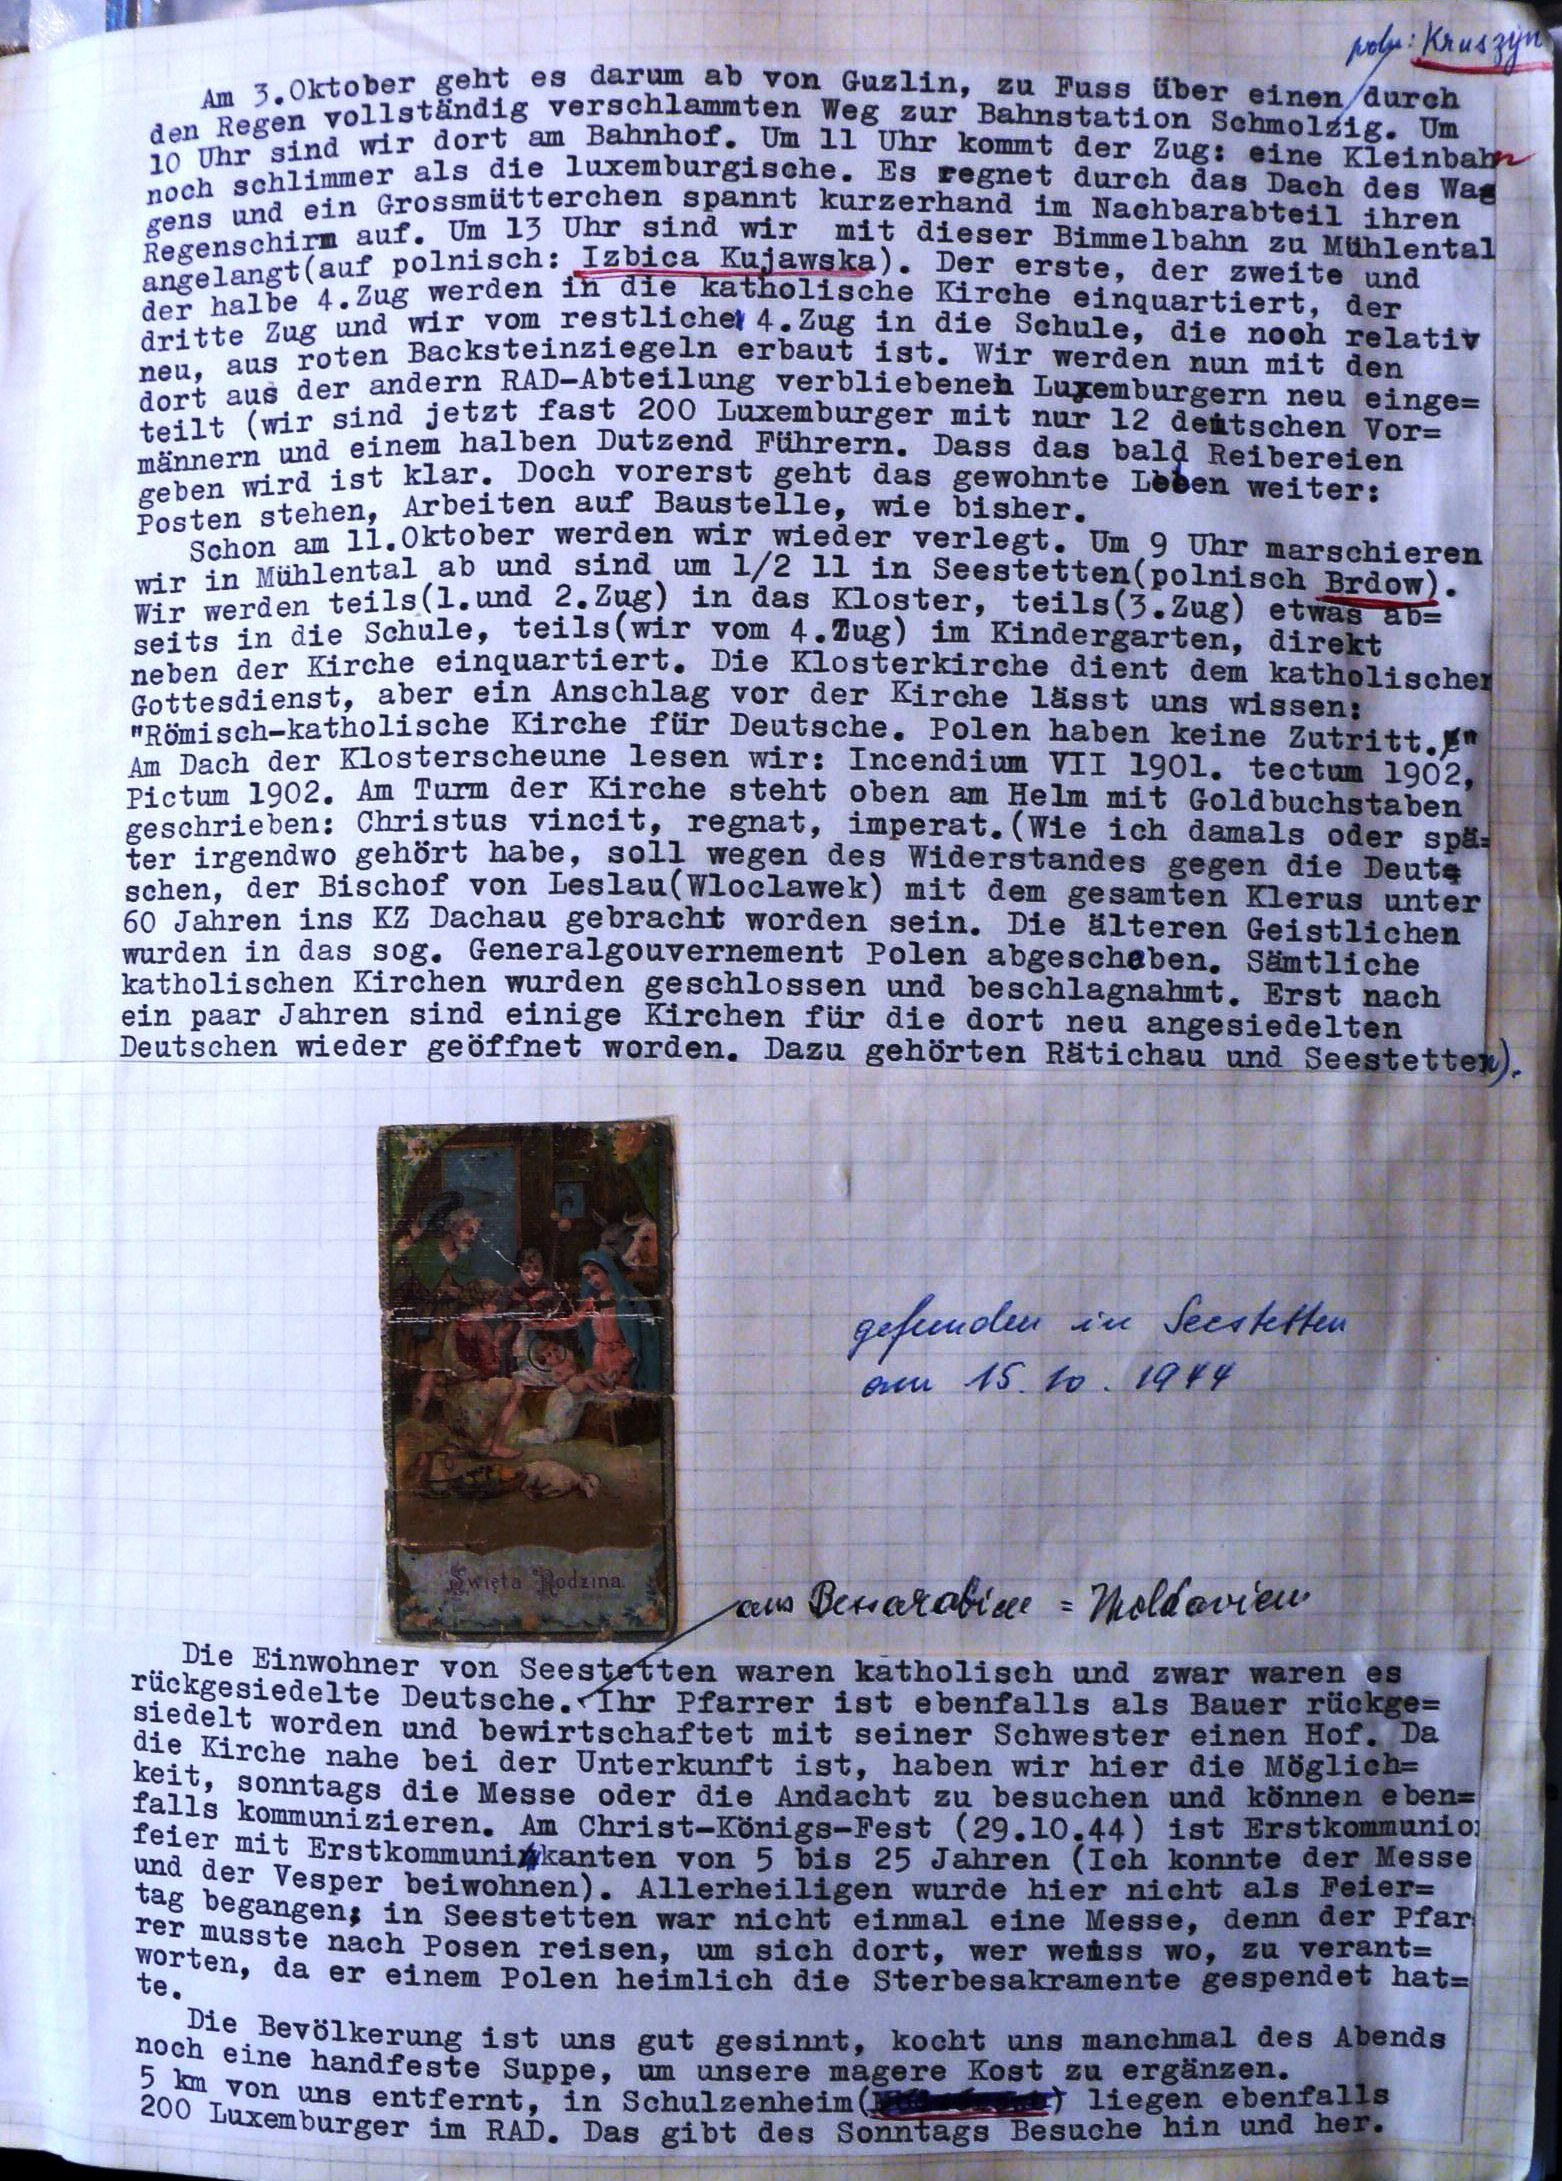 poln: Kruszyn
Am 3.Oktober geht es darum ab von Guzlin, zu Fuss über einen durch
den Regen vollständig verschlammten Weg zur Bahnstation Schmolzig. Um
10 Uhr sind wir dort am Bahnhof. Um 11 Uhr kommt der Zug: eine Kleinbahn
noch schlimmer als die luxemburgische. Es regnet durch das Dach des Wag
gens und ein Grossmütterchen spannt kurzerhand im Nachbarabteil ihren
Regenschirm auf. Um 13 Uhr sind wir mit dieser Bimmelbahn zu Mühlental
angelangt(auf polnisch: Izbica Kujawska). Der erste, der zweite und
der halbe 4.Zug werden in die katholische Kirche einquartiert, der
dritte Zug und wir vom restliche 4.Zug in die Schule, die noch relativ
neu, aus roten Backsteinziegeln erbaut ist. Wir werden nun mit den
dort aus der andern RAD-Abteilung verbliebenen Luxemburgern neu einge=
teilt (wir sind jetzt fast 200 Luxemburger mit nur 12 deutschen Vor=
männern und einem halben Dutzend Führern. Dass das bald Reibereien
geben wird ist klar. Doch vorerst geht das gewohnte Leben weiter:
Posten stehen, Arbeiten auf Baustelle, wie bisher.
Schon am 11.Oktober werden wir wieder verlegt. Um 9 Uhr marschieren
wir in Mühlental ab und sind um 1/2 11 in Seestetten(polnisch Brdow).
Wir werden teils(1.und 2.Zug) in das Kloster, teils(3.Zug) etwas ab=
seits in die Schule, teils(wir vom 4.Zug) im Kindergarten, direkt
neben der Kirche einquartiert. Die Klosterkirche dient dem katholischen
Gottesdienst, aber ein Anschlag vor der Kirche lässt uns wissen:
"Römisch-katholische Kirche für Deutsche. Polen haben keine Zutritt."
Am Dach der Klosterscheune lesen wir: Incendium VII 1901. tectum 1902,
Pictum 1902. Am Turm der Kirche steht oben am Helm mit Goldbuchstaben
geschrieben: Christus vincit, regnat, imperat.(Wie ich damals oder spä=
ter irgendwo gehört habe, soll wegen des Widerstandes gegen die Deut=
schen, der Bischof von Leslau(Wloclawek) mit dem gesamten Klerus unter
60 Jahren ins KZ Dachau gebracht worden sein. Die älteren Geistlichen
wurden in das sog. Generalgouvernement Polen abgeschoben. Sämtliche
katholischen Kirchen wurden geschlossen und beschlagnahmt. Erst nach
ein paar Jahren sind einige Kirchen für die dort neu angesiedelten
Deutschen wieder geöffnet worden. Dazu gehörten Rätichau und Seestetten).
gefunden in Seestetten
am 15.10.1944
Święta Rodzina.
aus Bessarabien = Moldavien
Die Einwohner von Seestetten waren katholisch und zwar waren es
rückgesiedelte Deutsche. Ihr Pfarrer ist ebenfalls als Bauer rückge=
siedelt worden und bewirtschaftet mit seiner Schwester einen Hof. Da
die Kirche nahe bei der Unterkunft ist, haben wir hier die Möglich=
keit, sonntags die Messe oder die Andacht zu besuchen und können eben=
falls kommunizieren. Am Christ-Königs-Fest (29.10.44) ist Erstkommunion
feier mit Erstkommunikanten von 5 bis 25 Jahren (Ich konnte der Messe
und der Vesper beiwohnen). Allerheiligen wurde hier nicht als Feier=
tag begangen; in Seestetten war nicht einmal eine Messe, denn der Pfar
rer musste nach Posen reisen, um sich dort, wer weiss wo, zu verant=
worten, da er einem Polen heimlich die Sterbesakramente gespendet hat=
te.
Die Bevölkerung ist uns gut gesinnt, kocht uns manchmal des Abends
noch eine handfeste Suppe, um unsere magere Kost zu ergänzen.
5 km von uns entfernt, in Schulzenheim( ) liegen ebenfalls
200 Luxemburger im RAD. Das gibt des Sonntags Besuche hin und her.